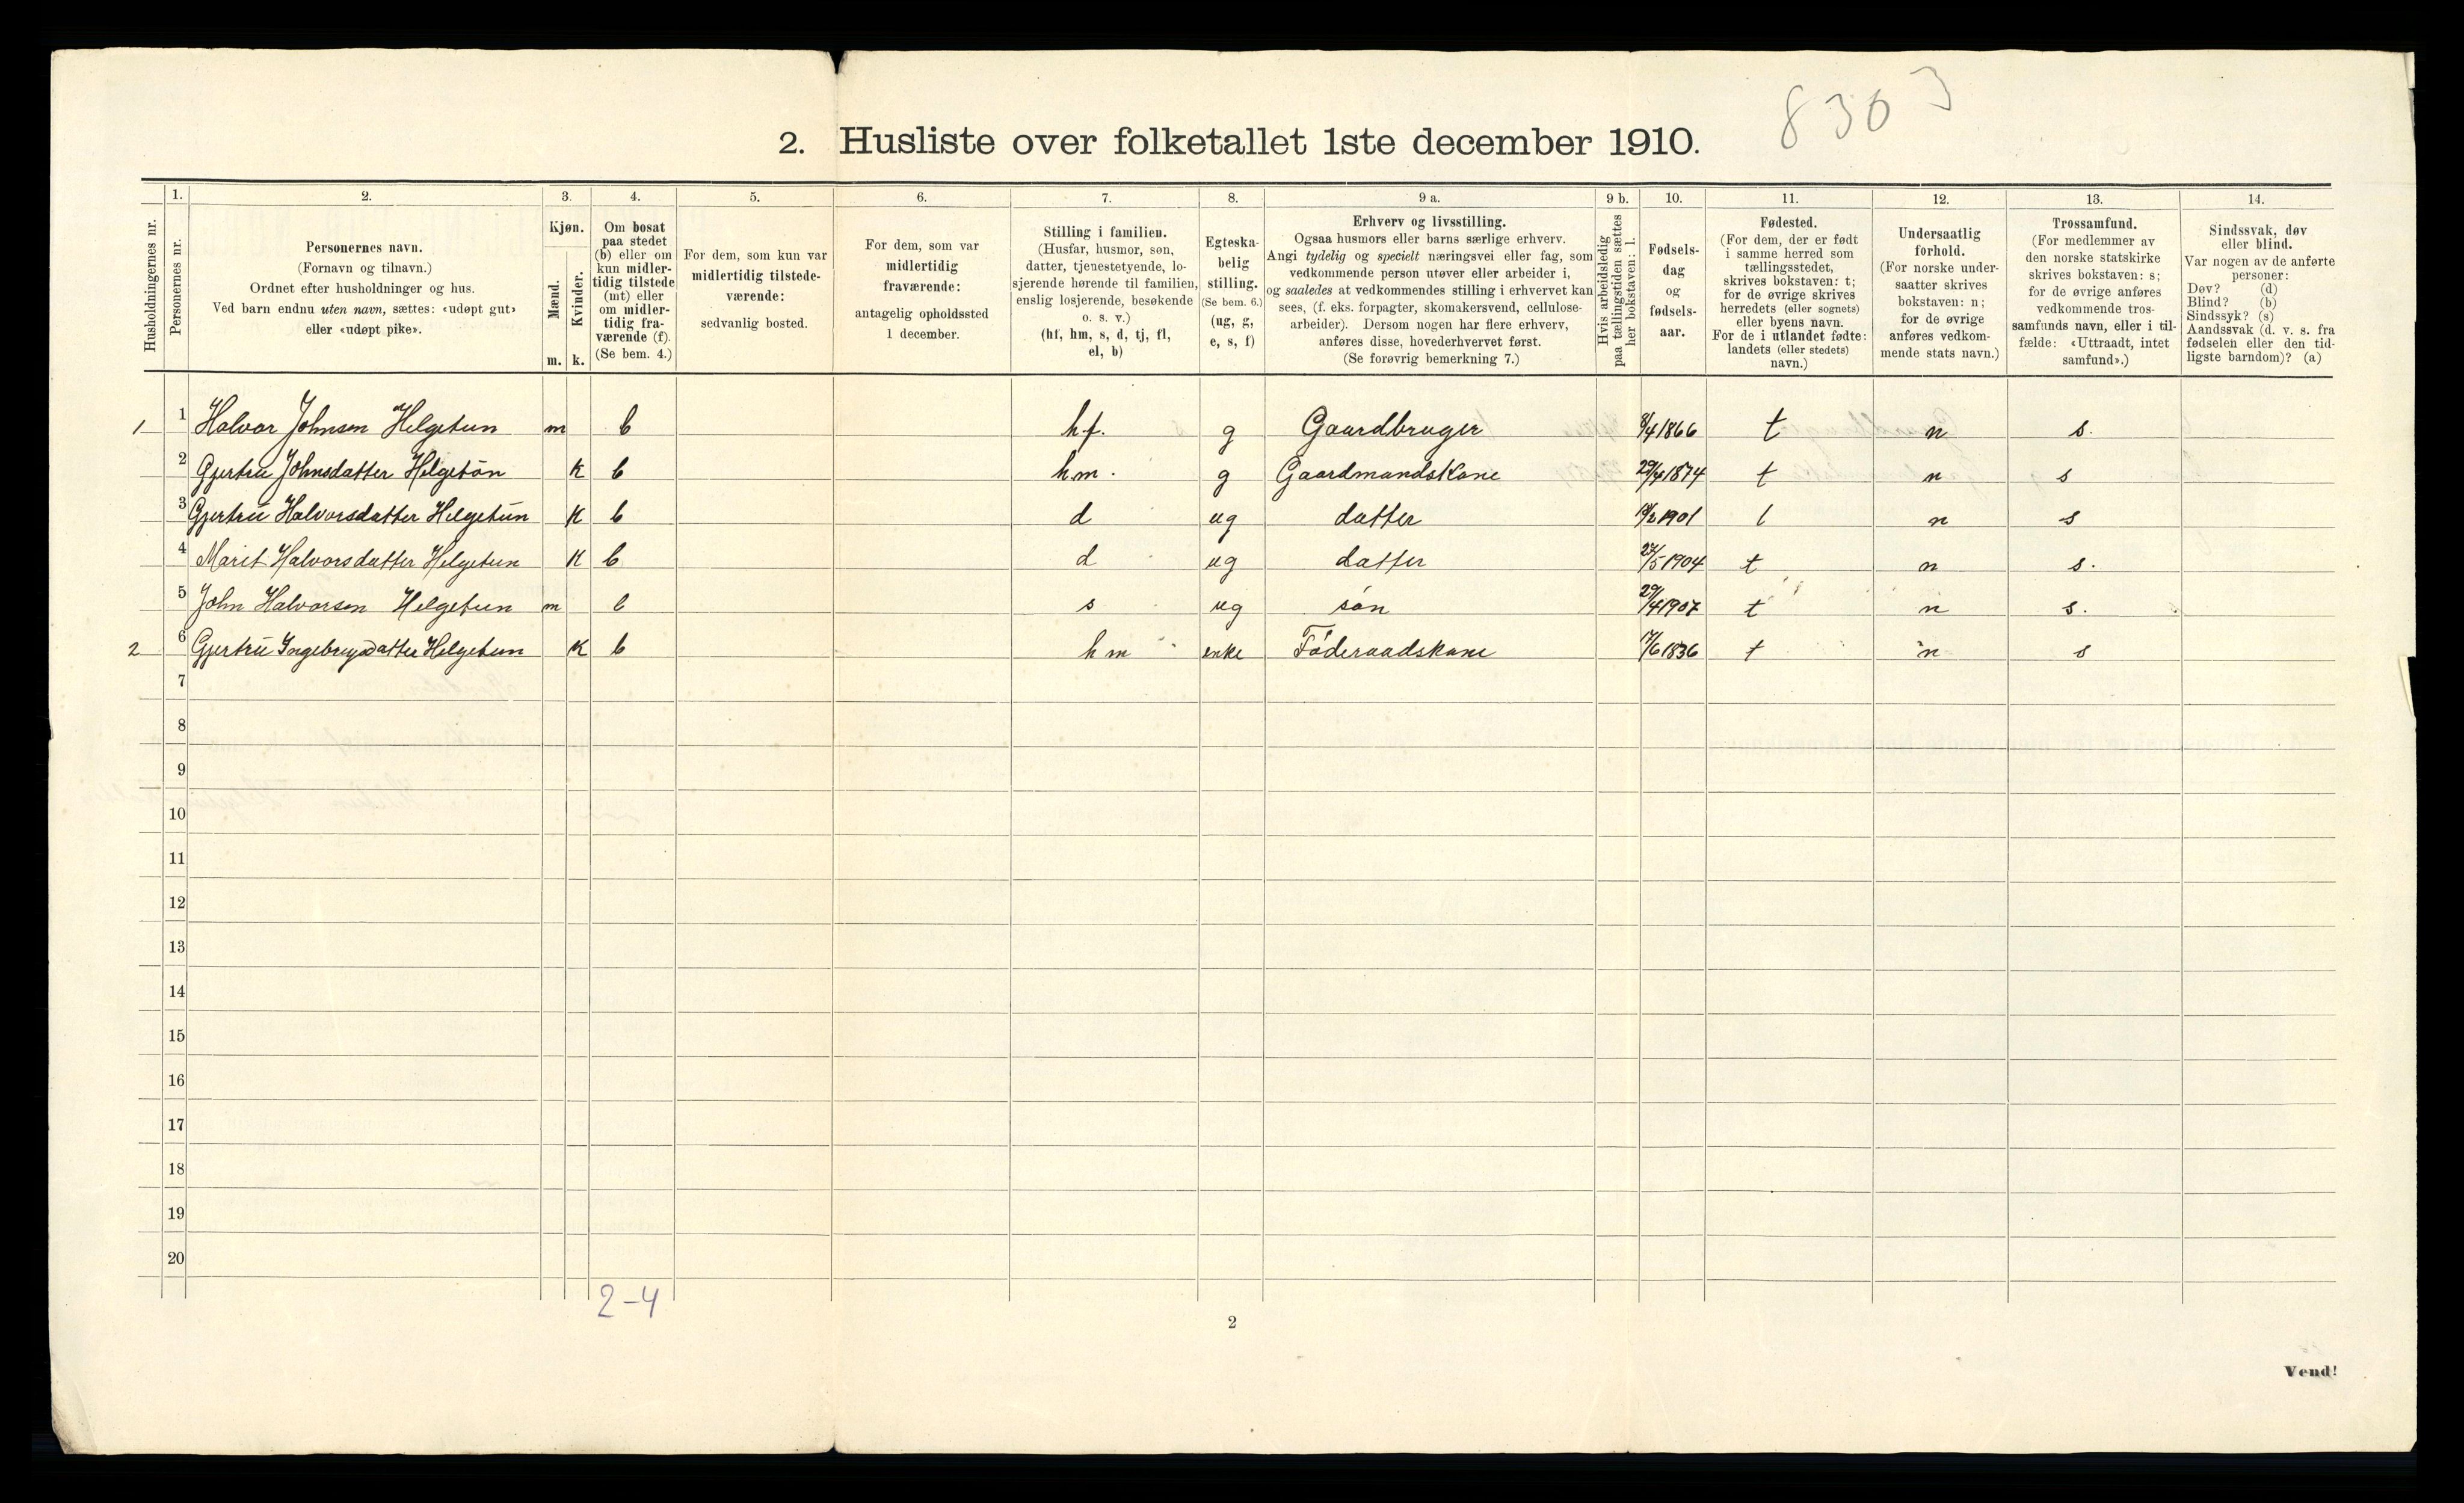 8303
2. Husliste over folketallet 1ste december 1910.
Husholdningernes nr.
1.
Personernes nr.
2.
Personernes navn.
(Fornavn og tilnavn.)
Ordnet efter husholdninger og hus.
Ved barn endnu uten navn, sættes: «udøpt gut»
eller «udøpt pike».
3.
Kjøn.
Mænd.
Kvinder.
m. k.
4.
Om bosat
paa stedet
(b) eller om
kun midler-
tidig tilstede
(mt) eller
om midler-
tidig fra-
værende (f).
(Se bem. 4.)
5.
For dem, som kun var
midlertidig tilstede-
værende:
sedvanlig bosted.
6.
For dem, som var
midlertidig
fraværende:
antagelig opholdssted
1 december.
7.
Stilling i familien.
(Husfar, husmor, søn,
datter, tjenestetyende, lo-
sjerende hørende til familien,
enslig losjerende, besøkende
o. s. v.)
(hf, hm, s, d, tj, fl,
el, b)
8.
Egteska-
belig
stilling.
(Se bem. 6.)
(ug, g,
e, s, f)
9 a.
Erhverv og livsstilling.
Ogsaa husmors eller barns særlige erhverv.
Angi tydelig og specielt næringsvei eller fag, som
vedkommende person utøver eller arbeider i,
og saaledes at vedkommendes stilling i erhvervet kan
sees, (f. eks. forpagter, skomakersvend, cellulose-
arbeider). Dersom nogen har flere erhverv,
anføres disse, hovederhvervet først.
(Se forøvrig bemerkning 7.)
9 b.
Hvis arbeidsledig
paa tællingstiden sættes
her bokstaven: l.
10.
Fødsels-
dag
og
fødsels-
aar.
11.
Fødested.
(For dem, der er født
i samme herred som
tællingsstedet,
skrives bokstaven: t;
for de øvrige skrives
herredets (eller sognets)
eller byens navn.
For de i utlandet fødte:
landets (eller stedets)
navn.)
12.
Undersaatlig
forhold.
(For norske under-
saatter skrives
bokstaven: n;
for de øvrige
anføres vedkom-
mende stats navn.)
13.
Trossamfund.
(For medlemmer av
den norske statskirke
skrives bokstaven: s;
for de øvrige anføres
vedkommende tros-
samfunds navn, eller i til-
fælde: «Uttraadt, intet
samfund».)
14.
Sindssvak, døv
eller blind.
Var nogen av de anførte
personer:
Døv? (d)
Blind? (b)
Sindssyk? (s)
Aandssvak (d. v. s. fra
fødselen eller den tid-
ligste barndom)? (a)
1 1 Halvor Johnsen Helgetun m b hf. g Gaardbruger 8/4 1866 t n s.
2 Gjertru Johnsdatter Helgetøn K b hm. g Gaardmandskone 29/4 1874 t n s
3 Gjertru Halvorsdatter Helgetun K b d ug datter /2 1901 t n s
4 Marit Halvorsdatter Helgetun K b d ug datter 27/5 1904 t n s.
5 John Halvorsen Helgetun m b s ug søn 29/4 1907 t n s.
2 6 Gjertru Helgetun K b hm enke Føderaadskone 17/6 1836 t n s
7
8
9
10
11
12
13
14
15
16
17
18
19
20
2-4
2
Vend!